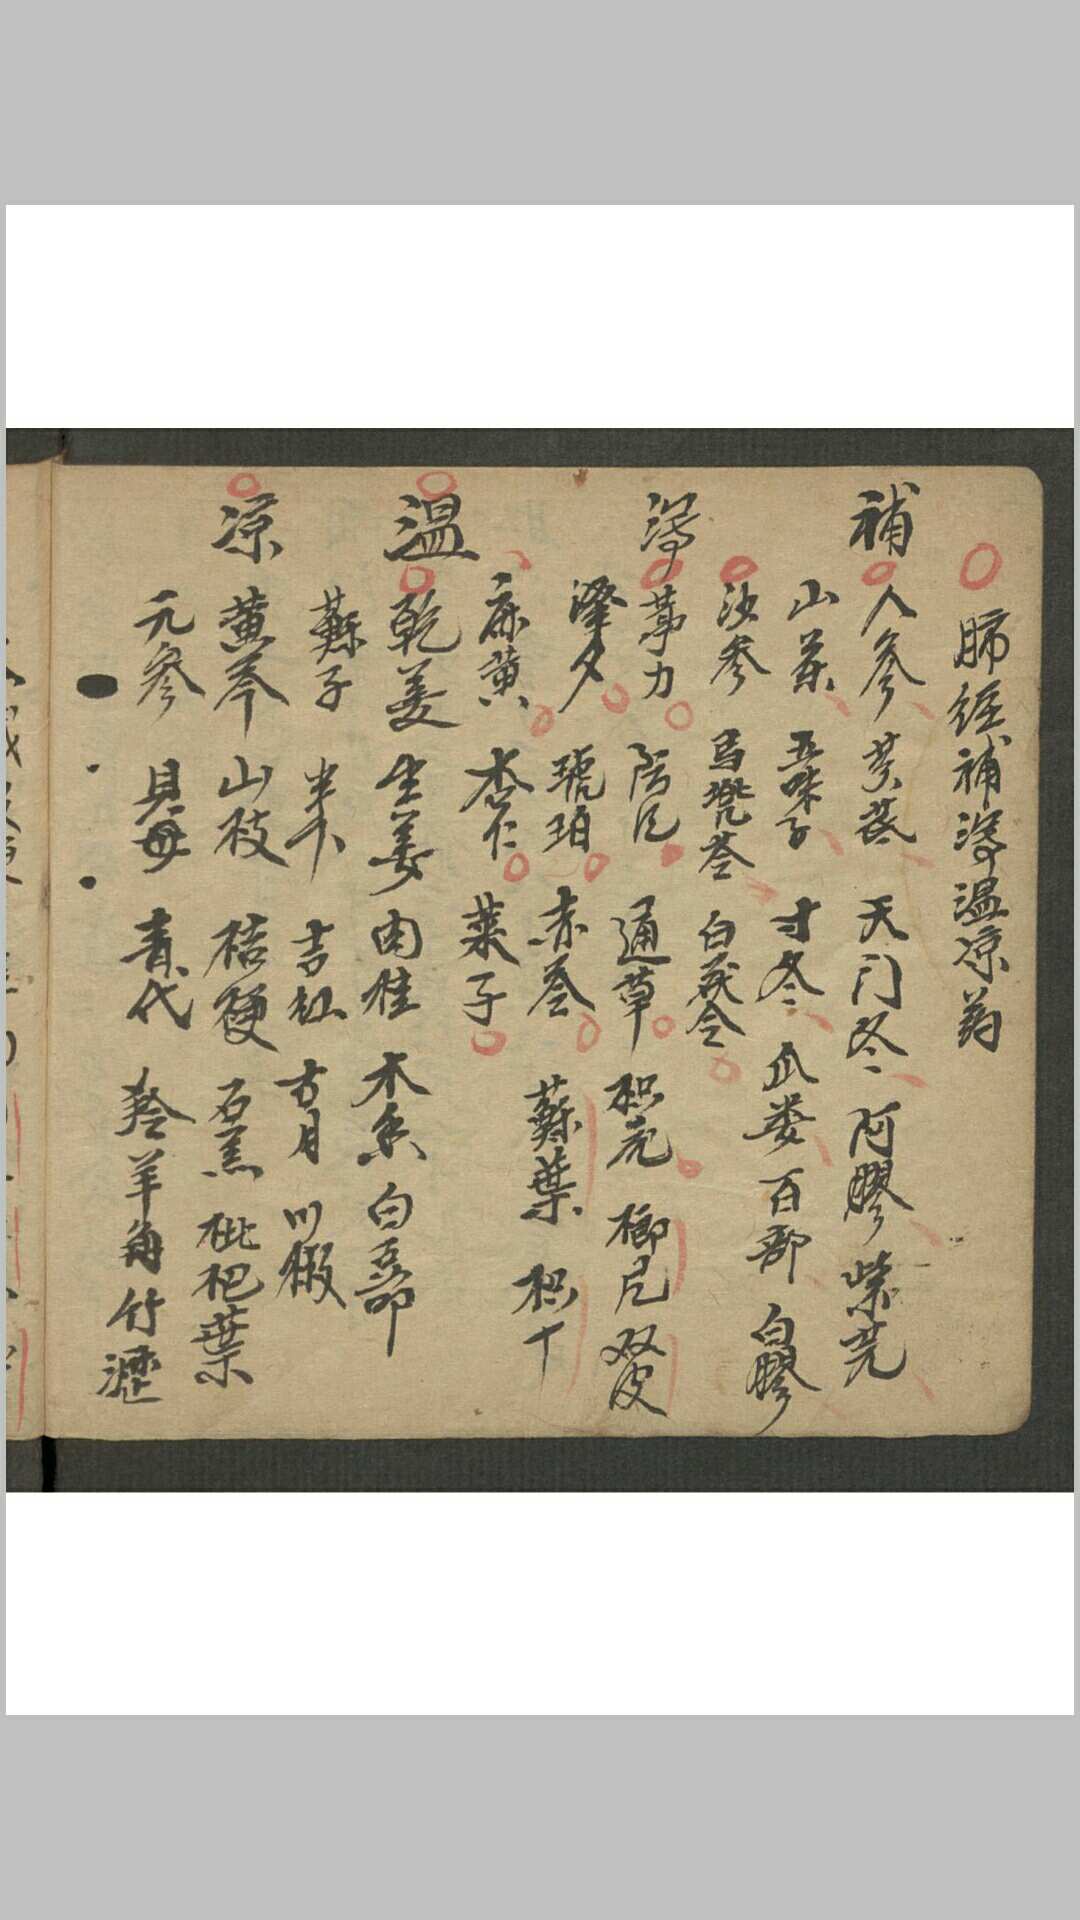 肺經補瀉温凉药
補
人參 芪 天门冬 阿膠 紫菀
山药 五味子 寸冬 瓜娄 百部 白膠
沙參 馬兜苓 白茯令
瀉
葶力 防己 通草 枳壳 榔片 双皮
澤夕 琥珀 赤苓 蘇葉 枳十
麻黄 杏仁 莱子
温
乾姜 生姜 肉桂 木香 白蔻
蘇子 半下 吉红 川椒
凉
黄芩 山枝 桔梗 石羔 枇杷葉
元參 貝母 青代 羚羊角 竹瀝